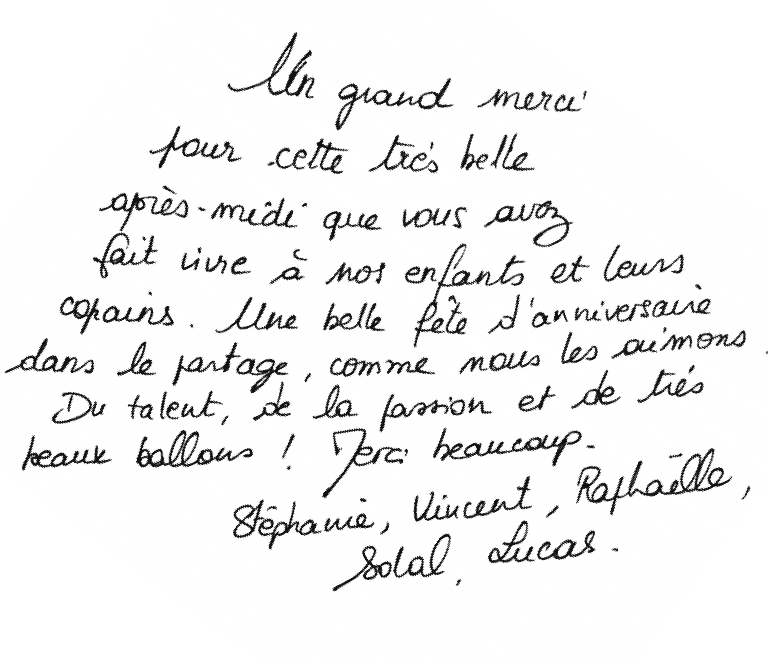 Un grand merci
pour cette très belle
après-midi que vous avez
fait vivre à nos enfants et leurs
copains. Une belle fête d'anniversaire
dans le partage, comme nous les aimons.
Du talent, de la passion et de très
beaux ballons ! Merci beaucoup.
Stéphanie, Vincent, Raphaëlle,
Solal, Lucas.